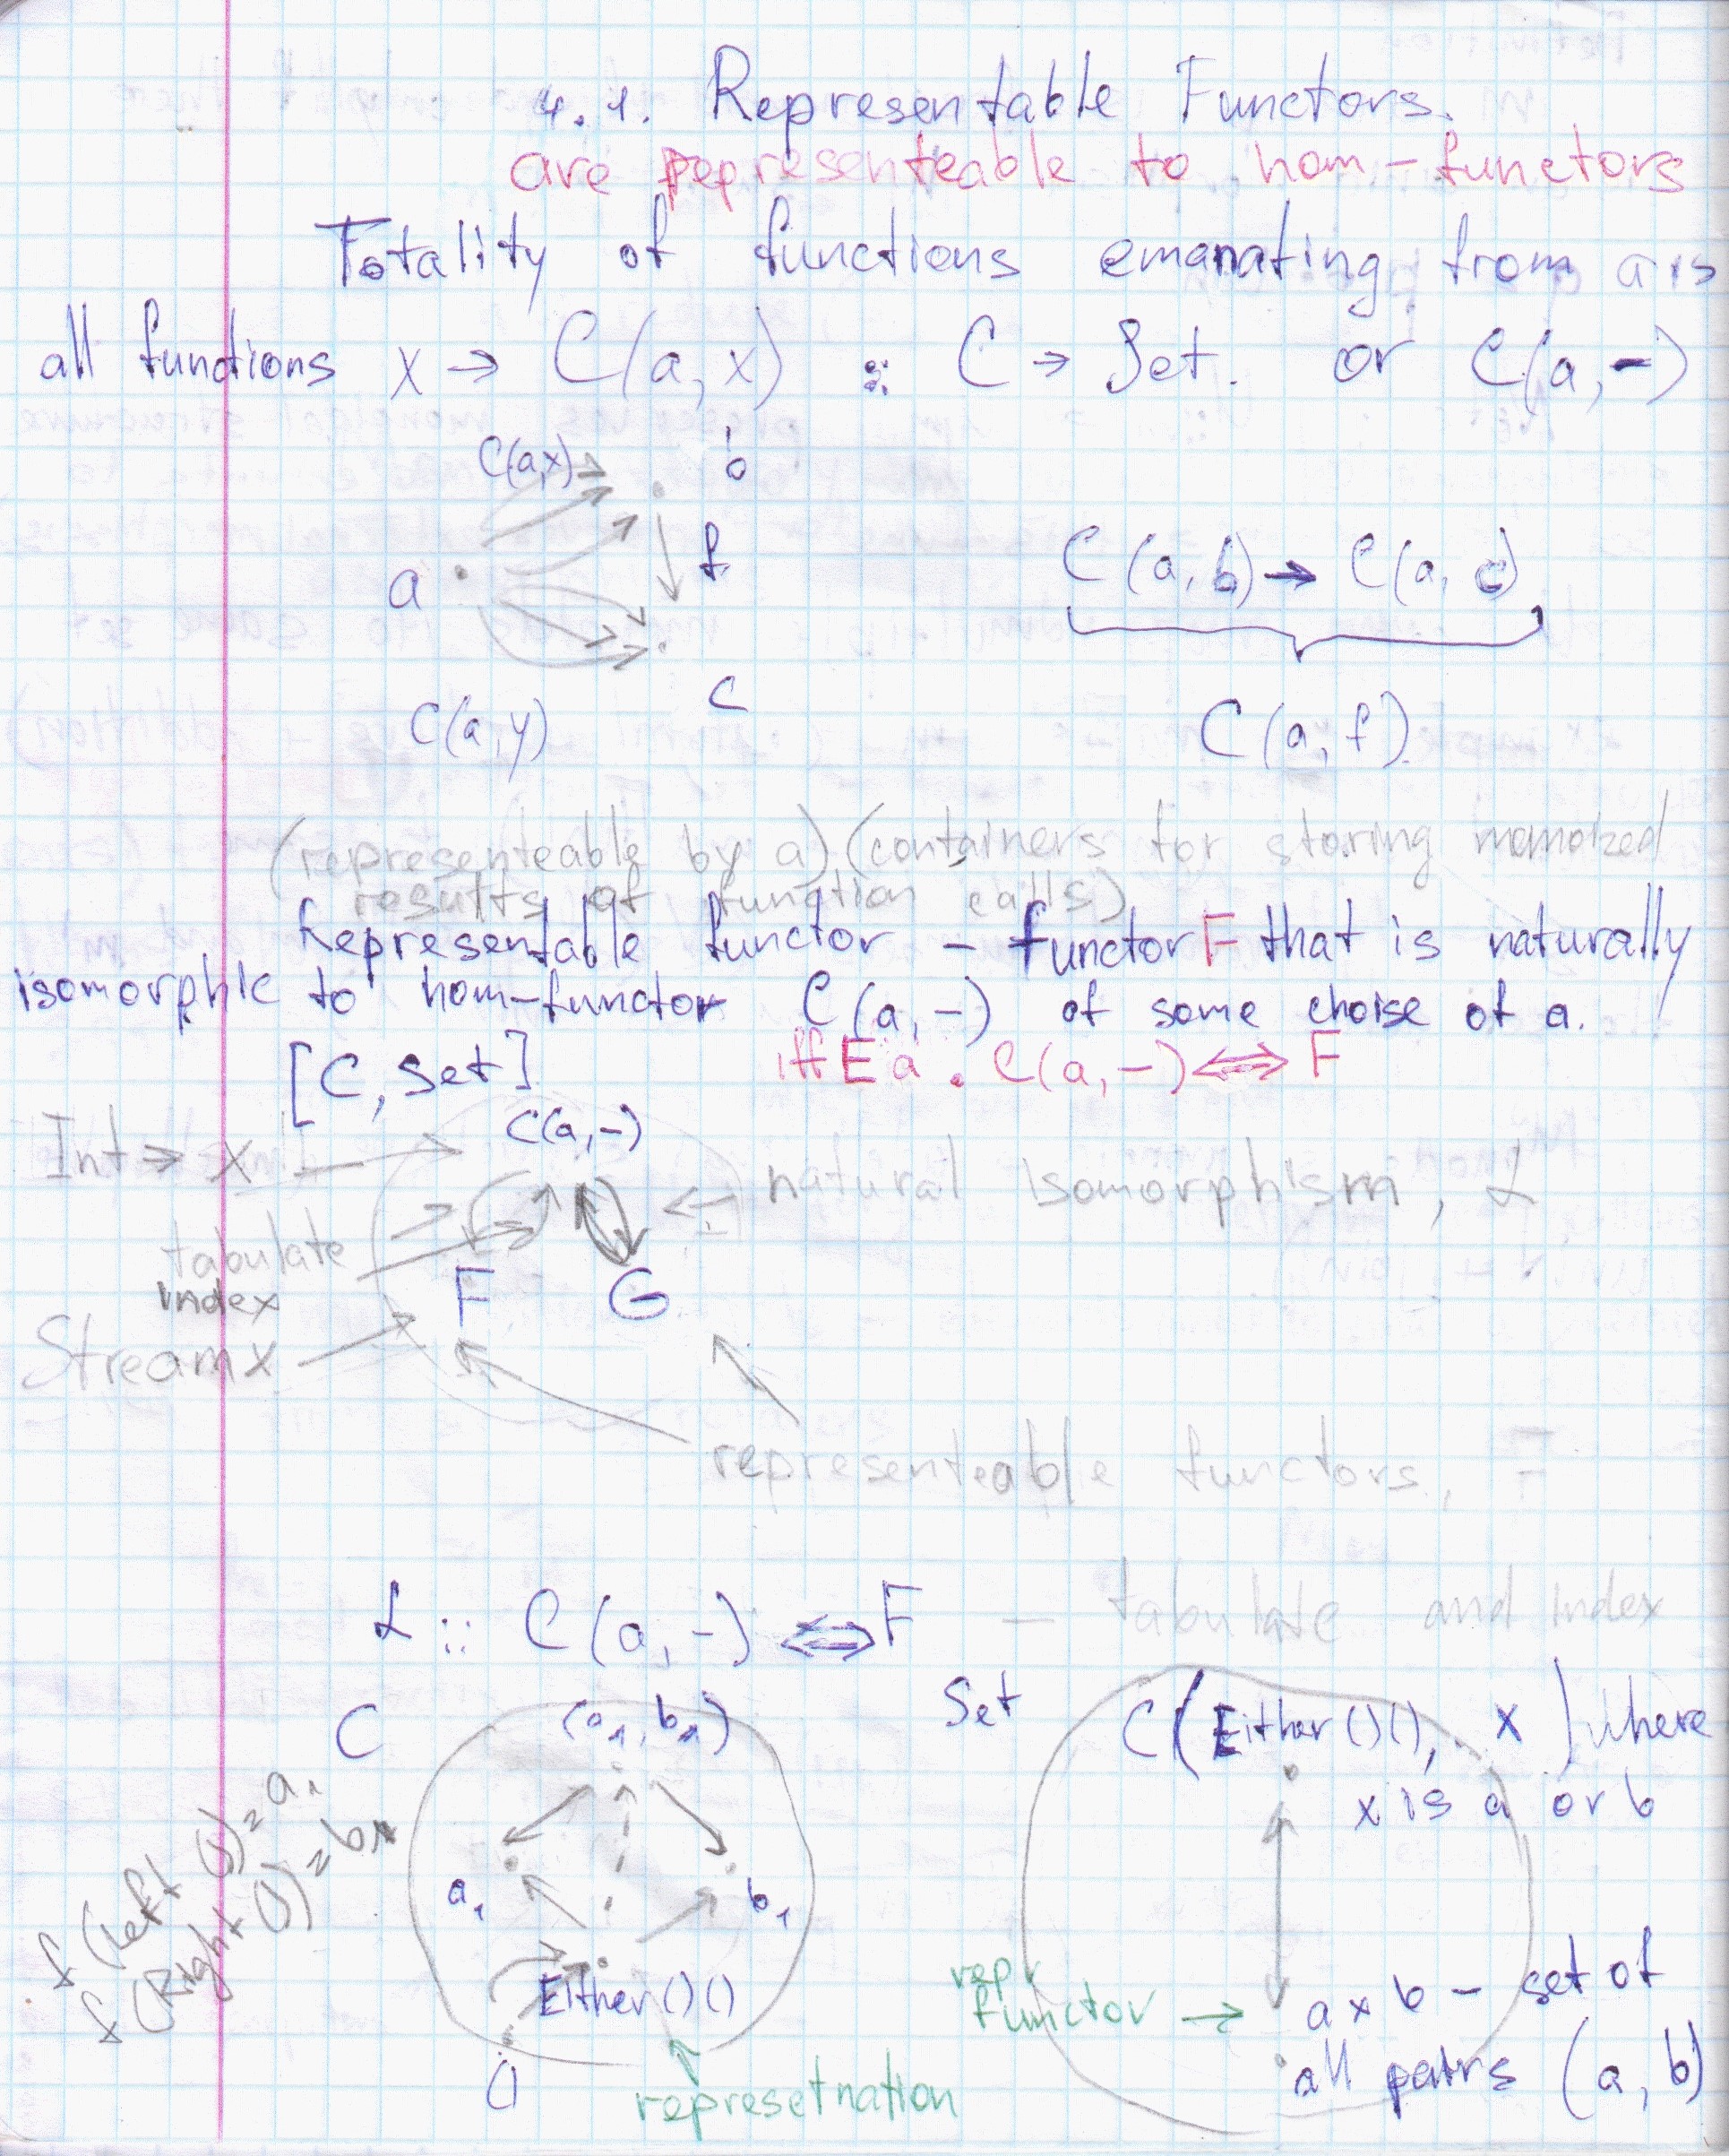 4.1. Representable Functors.
are representeable to hom-functors
Totality of functions emanating from a is
all functions x → C(a, x) :: C → Set. or C(a, -)
C(a,x) b
a f
C(a, b) → C(a, c)
c
C(a, y) C(a, f)
(representeable by a) (containers for storing memoized
results of function calls)
Representable functor - functor F that is naturally
isomorphic to hom-functor C(a, -) of some choise of a.
[C, Set] iff E a . C(a, -) ⟺ F
C(a, -)
Int → x
natural isomorphism, α
tabulate
index
F G
Stream x
representeable functors, F
α :: C(a, -) ⟺ F - tabulate and index
C (a₁, b₁) Set C(Either () (), x) where
x is a or b
f (Left ()) = a₁
f (Right ()) = b₁
a₁ b₁
Either () ()
()
represetnation
repr
functor → a × b - set of
all pairs (a, b)